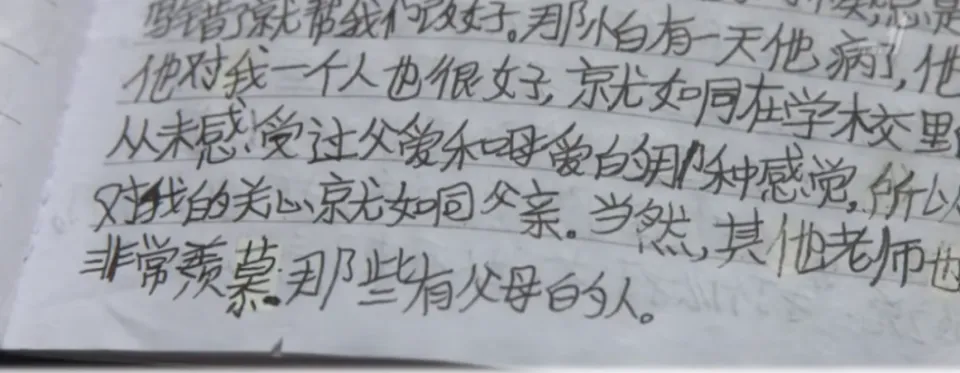 写错了就帮我们改好。那怕有一天他病了,他
他对我一个人也很好,就如同在学校里
从未感受过父爱和母爱的那种感觉,所以
对我的关心就如同父亲。当然,其他老师也
非常羡慕那些有父母的人。